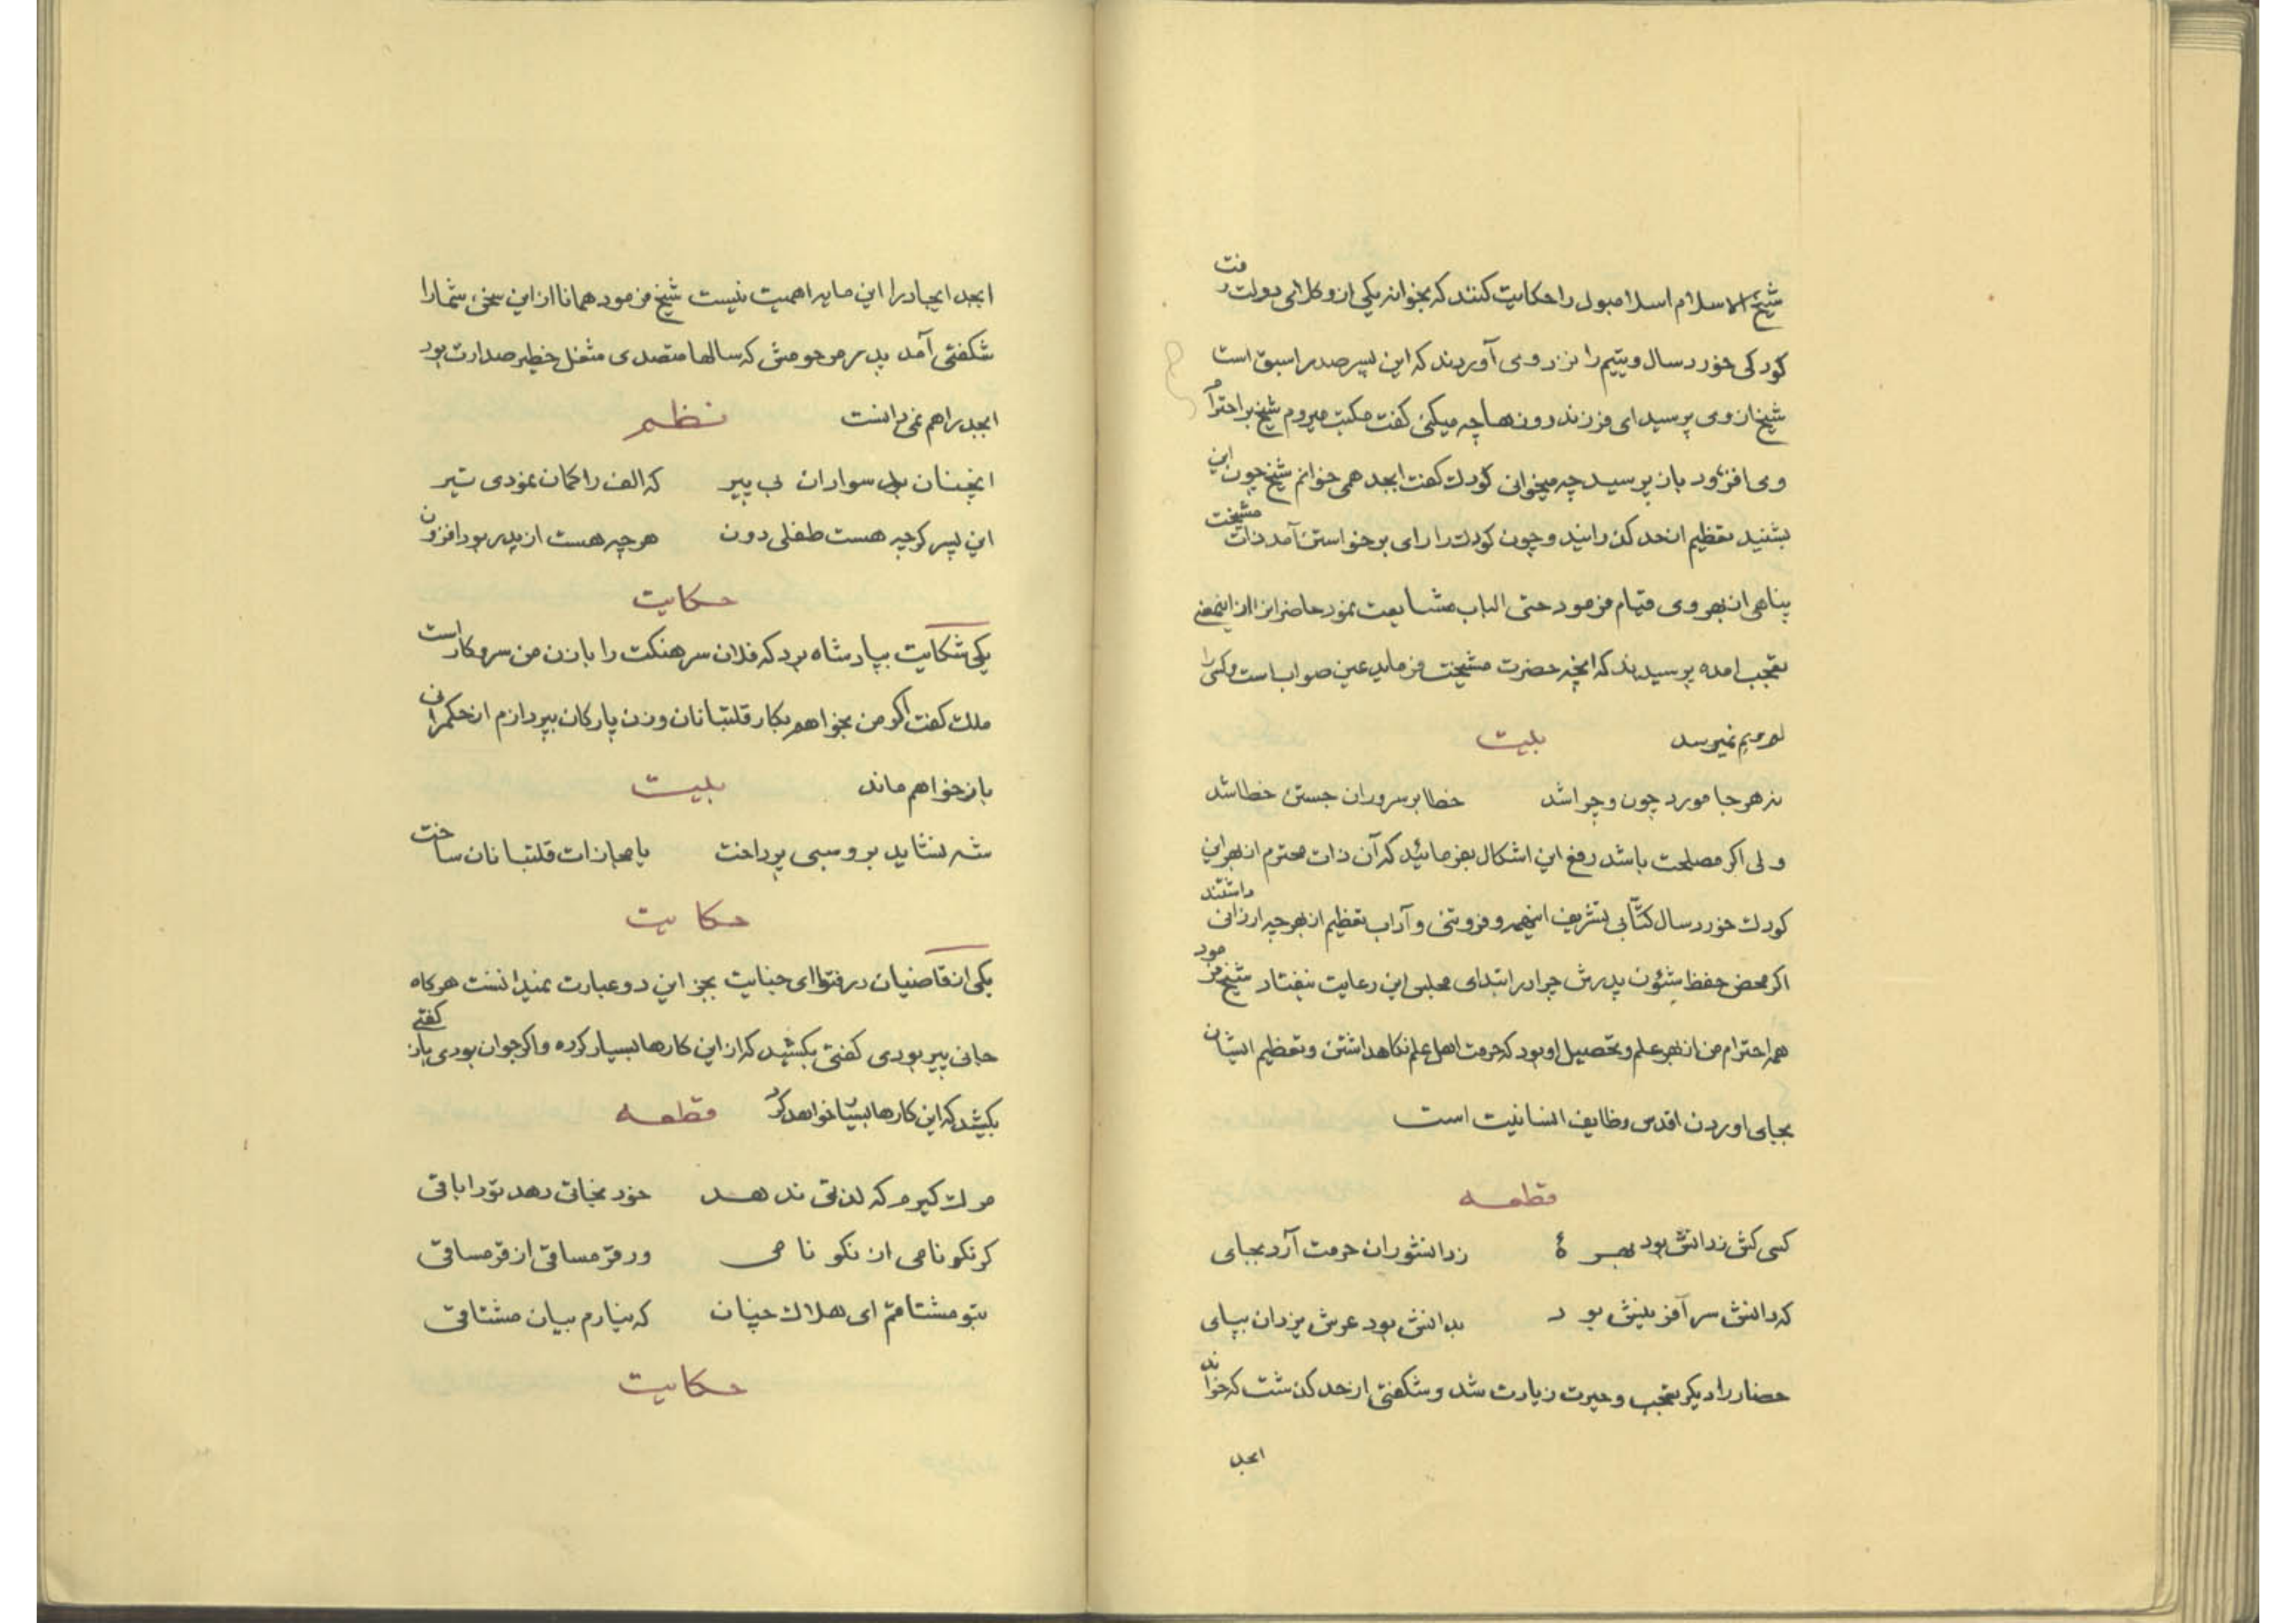 شیخ الاسلام اسلامبول را حکایت کنند که بخوانه یکی از وکلای دولت رفت
کودکی خورد سال و یتیم را نزد وی آوردند که این پسر صدر اسبق است
شیخ از وی پرسید ای فرزند روزها چه میکنی گفت مکتب میروم شیخ بر احترام
وی افزود باز پرسید چه میخوانی کودک گفت ابجد همی خوانم شیخ چون این
بشنید تعظیم از حد گذرانید و چون کودک را رای برخواستن آمد ذات مشیخت
پناهی از بهر وی قیام فرمود حتی الباب مشایعت نمود حاضرانرا از اینمعنی
تعجب امده پرسیدند که انچه حضرت مشیخت فرماید عین صواب است و کسی را
لم و بم نمیرسد بیت
نه هر جا مورد چون و چرا شد خطا بر سروران جستن خطا شد
ولی اگر مصلحت باشد رفع این اشکال بفرمائید که آن ذات محترم از بهر این
کودک خورد سال کتّابی تشریف اینهمه و فروتنی و آداب تعظیم از بهر چه ارزانی داشتند
اگر محض حفظ شئون پدرش چرا در ابتدای مجلس این رعایت نیفتاد شیخ فرمود
همه احترام من از بهر علم و تحصیل او بود که حرمت اهل علم نگاهداشتن و تعظیم ایشان
بجای اوردن اقدس وظایف انسانیت است
قطعه
کسی کش ز دانش بود بهرهٔ ز دانشوران حرمت آرد بجای
که دانش سر آفرینش بود بدانش بود عرش یزدان بپای
حضار را دیگر تعجب و حیرت زیادت شد و شگفتی از حد گذشت که خواند
ابجد
ابجد ایجاد را این مایه اهمیت نیست شیخ فرمود همانا از این سخن شما را
شکفتی آمد پدر مرحومش که سالها متصدی مشغل خطیر صدارت بود
ابجد را هم نمی دانست نظم
انچنان بد سواران بی پیر که الف را کمان نمودی تیر
این پسر کرچه هست طفلی دون هرچه هست از پدر بود افزون
حکایت
یکی شکایت بپادشاه برد که فلان سرهنکت را با زن من سر و کار است
ملک کفت اکر من بخواهم بکار قلتبانان و زن پارکان بپردازم از حکمرانی
باز خواهم ماند بیت
شه نشاید بروسبی پرداخت یا مجازات قلتبانان ساخت
حکایت
یکی از قاضیان در فتوای جنایت بجز این دو عبارت نمیدانست هرکاه
جانی پیر بودی کفتی بکشید که از این کارها بسیار کرده و اکر جوان بودی باز کفتی
بکشید که این کارها بسیار خواهد کرد قطعه
مرک کیرم که لذتی ندهد خود نجاتی دهد تو را باقی
کر نکو نامی از نکو نامی ور قرمساقی از قرمساقی
بتو مشتاقم ای هلاک چنان که نیارم بیان مشتاقی
حکایت